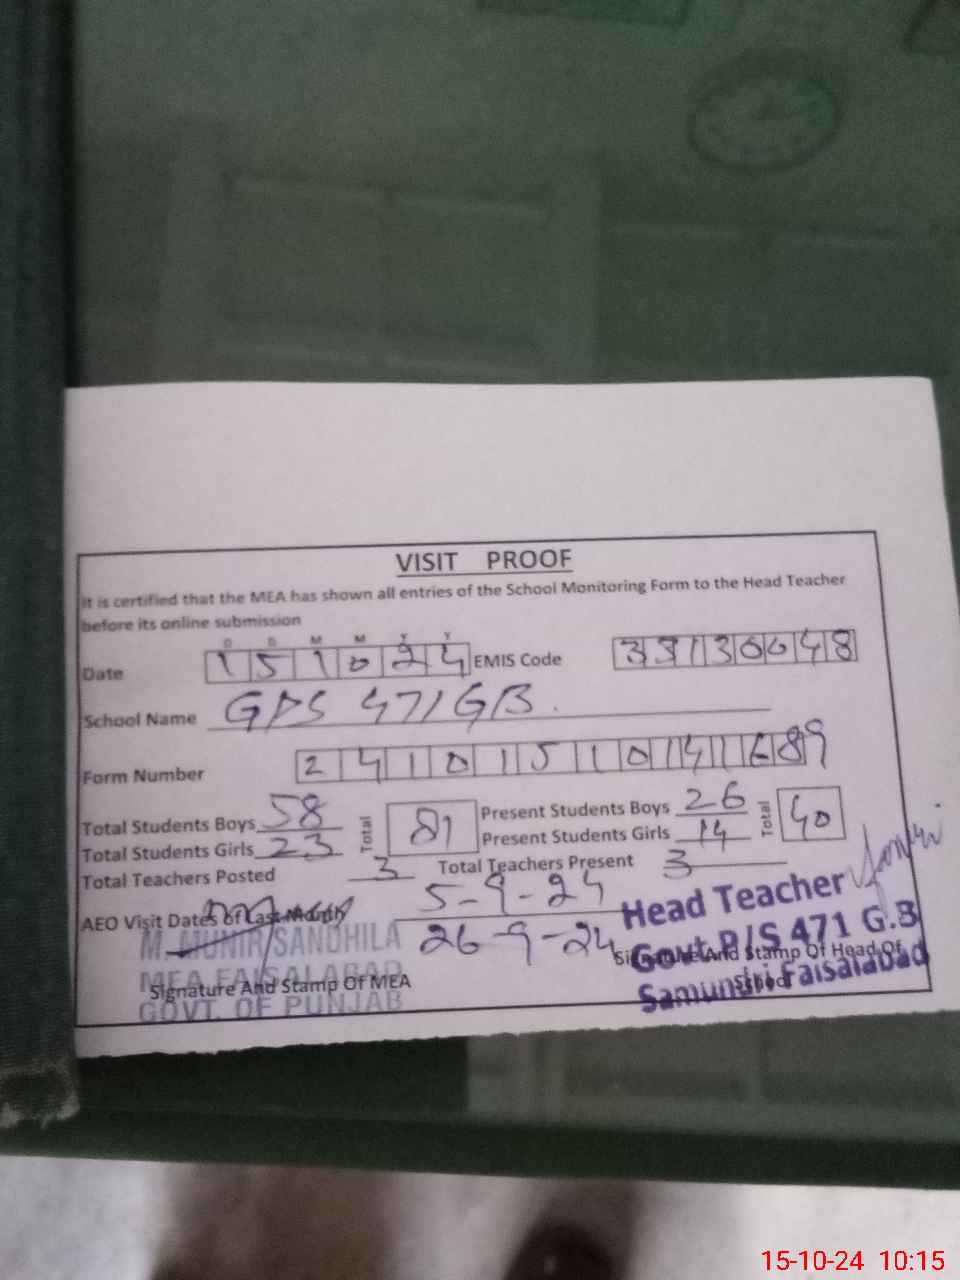 VISIT PROOF
It is certified that the MEA has shown all entries of the School Monitoring Form to the Head Teacher
before its online submission
D D M M Y Y
Date 1 5 1 0 2 4 EMIS Code 3 3 1 3 0 0 4 8
School Name GPS 471 GB.
Form Number 2 4 1 0 1 5 1 0 1 4 1 6 8 9
Total Students Boys 58 Total 81 Present Students Boys 26 Total 40
Total Students Girls 23 Present Students Girls 14
Total Teachers Posted 3 Total Teachers Present 3
AEO Visit Dates of Last Month 5-9-24
26-9-24
M. MUNIR SANDHILA
MEA FAISALABAD
GOVT. OF PUNJAB
Signature And Stamp Of MEA
Head Teacher
Govt. P/S 471 G.B
Samundri Faisalabad
Signature And Stamp Of Head Of
School
15-10-24 10:15